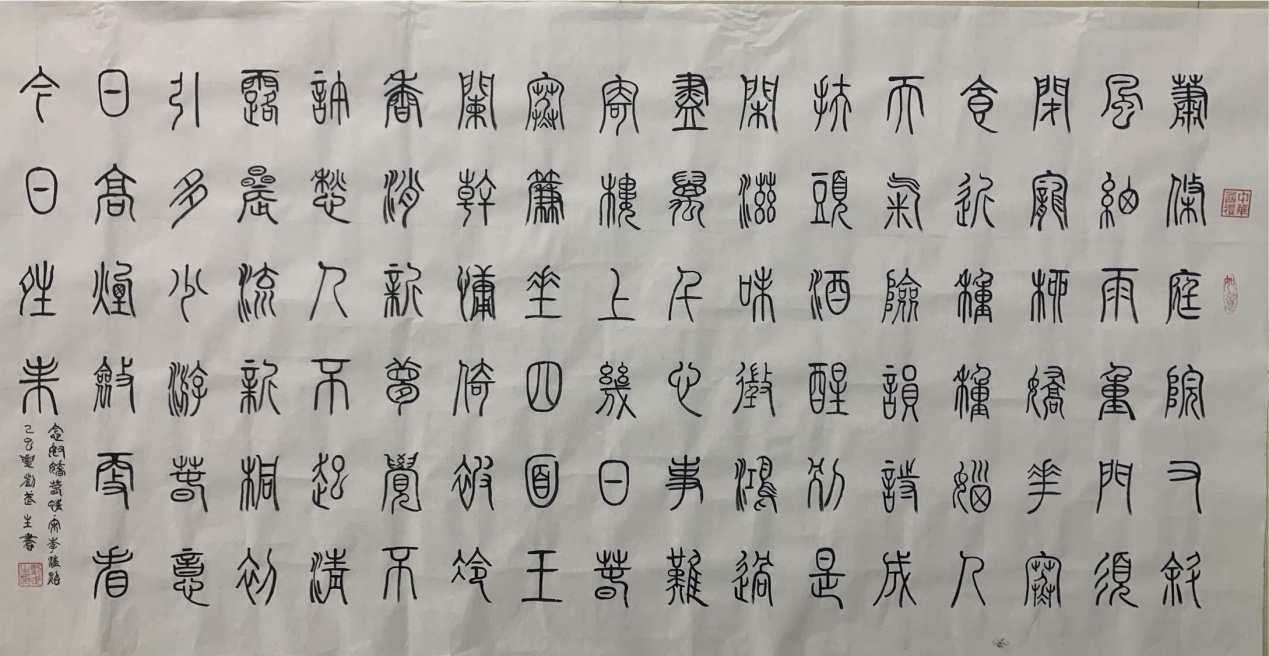 中華國禮
蕭條庭院又斜
風細雨重門須
閉寵柳嬌花寒
食近種種惱人
天氣險韻詩成
扶頭酒醒別是
閑滋味徵鴻過
盡萬千心事難
寄樓上幾日春
寒簾垂四面王
闌幹慵倚被冷
香消新夢覺不
許愁人不起清
露晨流新桐初
引多少游春意
日高煙斂更看
今日晴未
念奴嬌春情宋李清照